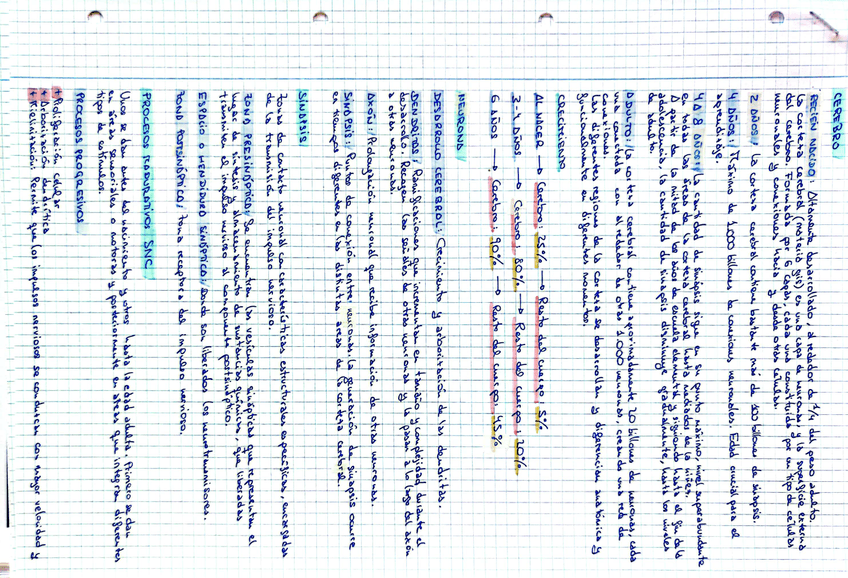 CEREBRO/
RECIÉN NACIDO/ Altamente desarrollado, alrededor de 1/4 del peso adulto.
La corteza cerebral (materia gris) es una capa de neuronas y la superficie externa
del cerebro. Formada por 6 capas, cada una constituida por un tipo de células
neuronales y conexiones, hacia y desde otras células.
2 AÑOS/ La corteza cerebral contiene bastante más de 100 billones de sinapsis.
4 AÑOS/ Máximo de 1.000 billones de conexiones neuronales. Edad crucial para el
aprendizaje.
4 A 8 AÑOS/ La cantidad de sinapsis sigue en su punto máximo, nivel superabundante
en todas las áreas de la corteza cerebral hasta mediados de la niñez.
A partir de la mitad de los años de escuela elemental y siguiendo hasta el fin de la
adolescencia, la cantidad de sinapsis disminuye gradualmente, hasta los niveles
de adulto.
ADULTO/ La corteza cerebral contiene aproximadamente 20 billones de neuronas, cada
una conectada con alrededor de otras 1.000 neuronas, creando una red de
conexiones.
Las diferentes regiones de la corteza se desarrollan y diferencian anatómica y
funcionalmente en diferentes momentos.
CRECIMIENTO
AL NACER → Cerebro: 25% → Resto del cuerpo: 5%
3-4 AÑOS → Cerebro: 80% → Resto del cuerpo: 20%
6 AÑOS → Cerebro: 90% → Resto del cuerpo: 45%
NEURONA/
DESARROLLO CEREBRAL: Crecimiento y arborización de las dendritas.
DENDRITAS: Ramificaciones que incrementan en tamaño y complejidad durante el
desarrollo. Recogen las señales de otras neuronas y la pasan a lo largo del axón
a otras neuronas.
AXÓN: Prolongación neuronal que recibe información de otras neuronas.
SINAPSIS: Puntos de conexión entre neuronas. La generación de sinapsis ocurre
en tiempos diferentes en las distintas áreas de la corteza cerebral.
SINAPSIS/
Zonas de contacto neuronal con características estructurales específicas, encargadas
de la transmisión del impulso nervioso.
ZONA PRESINÁPTICA: Se encuentran las vesículas sinápticas que representan el
lugar de síntesis y almacenamiento de sustancias químicas, que liberadas
transmiten el impulso nervioso al componente postsináptico.
ESPACIO O HENDIDURA SINÁPTICA: donde son liberados los neurotransmisores.
ZONA POSTSINÁPTICA: zona receptora del impulso nervioso.
PROCESOS MADURATIVOS SNC
Unos se dan antes del nacimiento y otros hasta la edad adulta. Primero se dan
en áreas sensoriales o motoras y posteriormente en áreas que integran diferentes
tipos de estímulos.
PROCESOS PROGRESIVOS/
* Proliferación celular.
* Arborización dendrítica.
* Mielinización. Permite que los impulsos nerviosos se conduzcan con mayor velocidad y